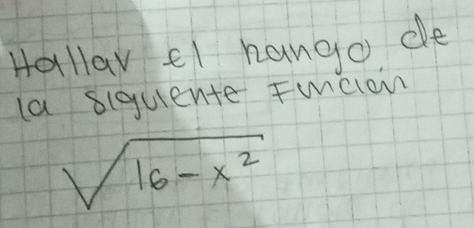 Hallar el rango de
la siguiente Función
√16-x²